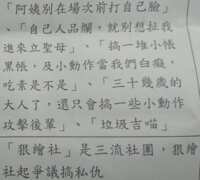 「阿姨別在場次前打自己臉」
、「自己人品爛，就別想拉我
進來立聖母」、「搞一堆小帳
黑帳，及小動作當我們白癡，
吃素是不是」、「三十幾歲的
大人了，還只會搞一些小動作
攻擊後輩」、「垃圾吉喵」
「狠繪社」是三流社團，狠繪
社起爭議搞私仇